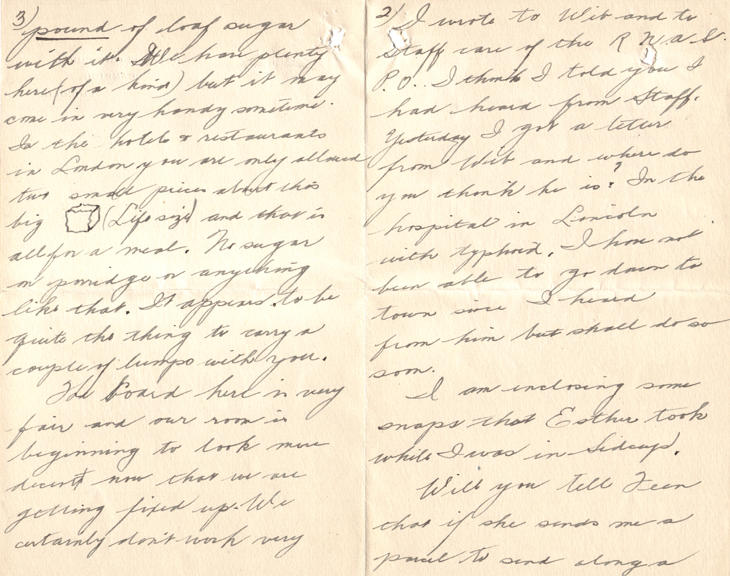 2) I wrote to Wib and to
Staff care of the R.N.A.S.
P.O. I think I told you I
had heard from Staff.
Yesterday I got a letter
from Wib and where do
you think he is? In the
hospital in Lincoln
with typhoid. I have not
been able to go down to
town since I heard
from him but shall do so
soon.
I am inclosing some
snaps that Esther took
while I was in Sidcup.
Will you tell Feen
that if she sends me a
parcel to send along a
3) pound of loaf sugar
with it. We have plenty
here (of a kind) but it may
come in very handy sometime.
In the hotels & restaurants
in London you are only allowed
two small pieces about this
big (Life size) and that is
all for a meal. No sugar
on porridge or anything
like that. It appears to be
quite the thing to carry a
couple of lumps with you.
The board here is very
fair and our room is
beginning to look more
decent now that we are
getting fixed up. We
certainly don't work very